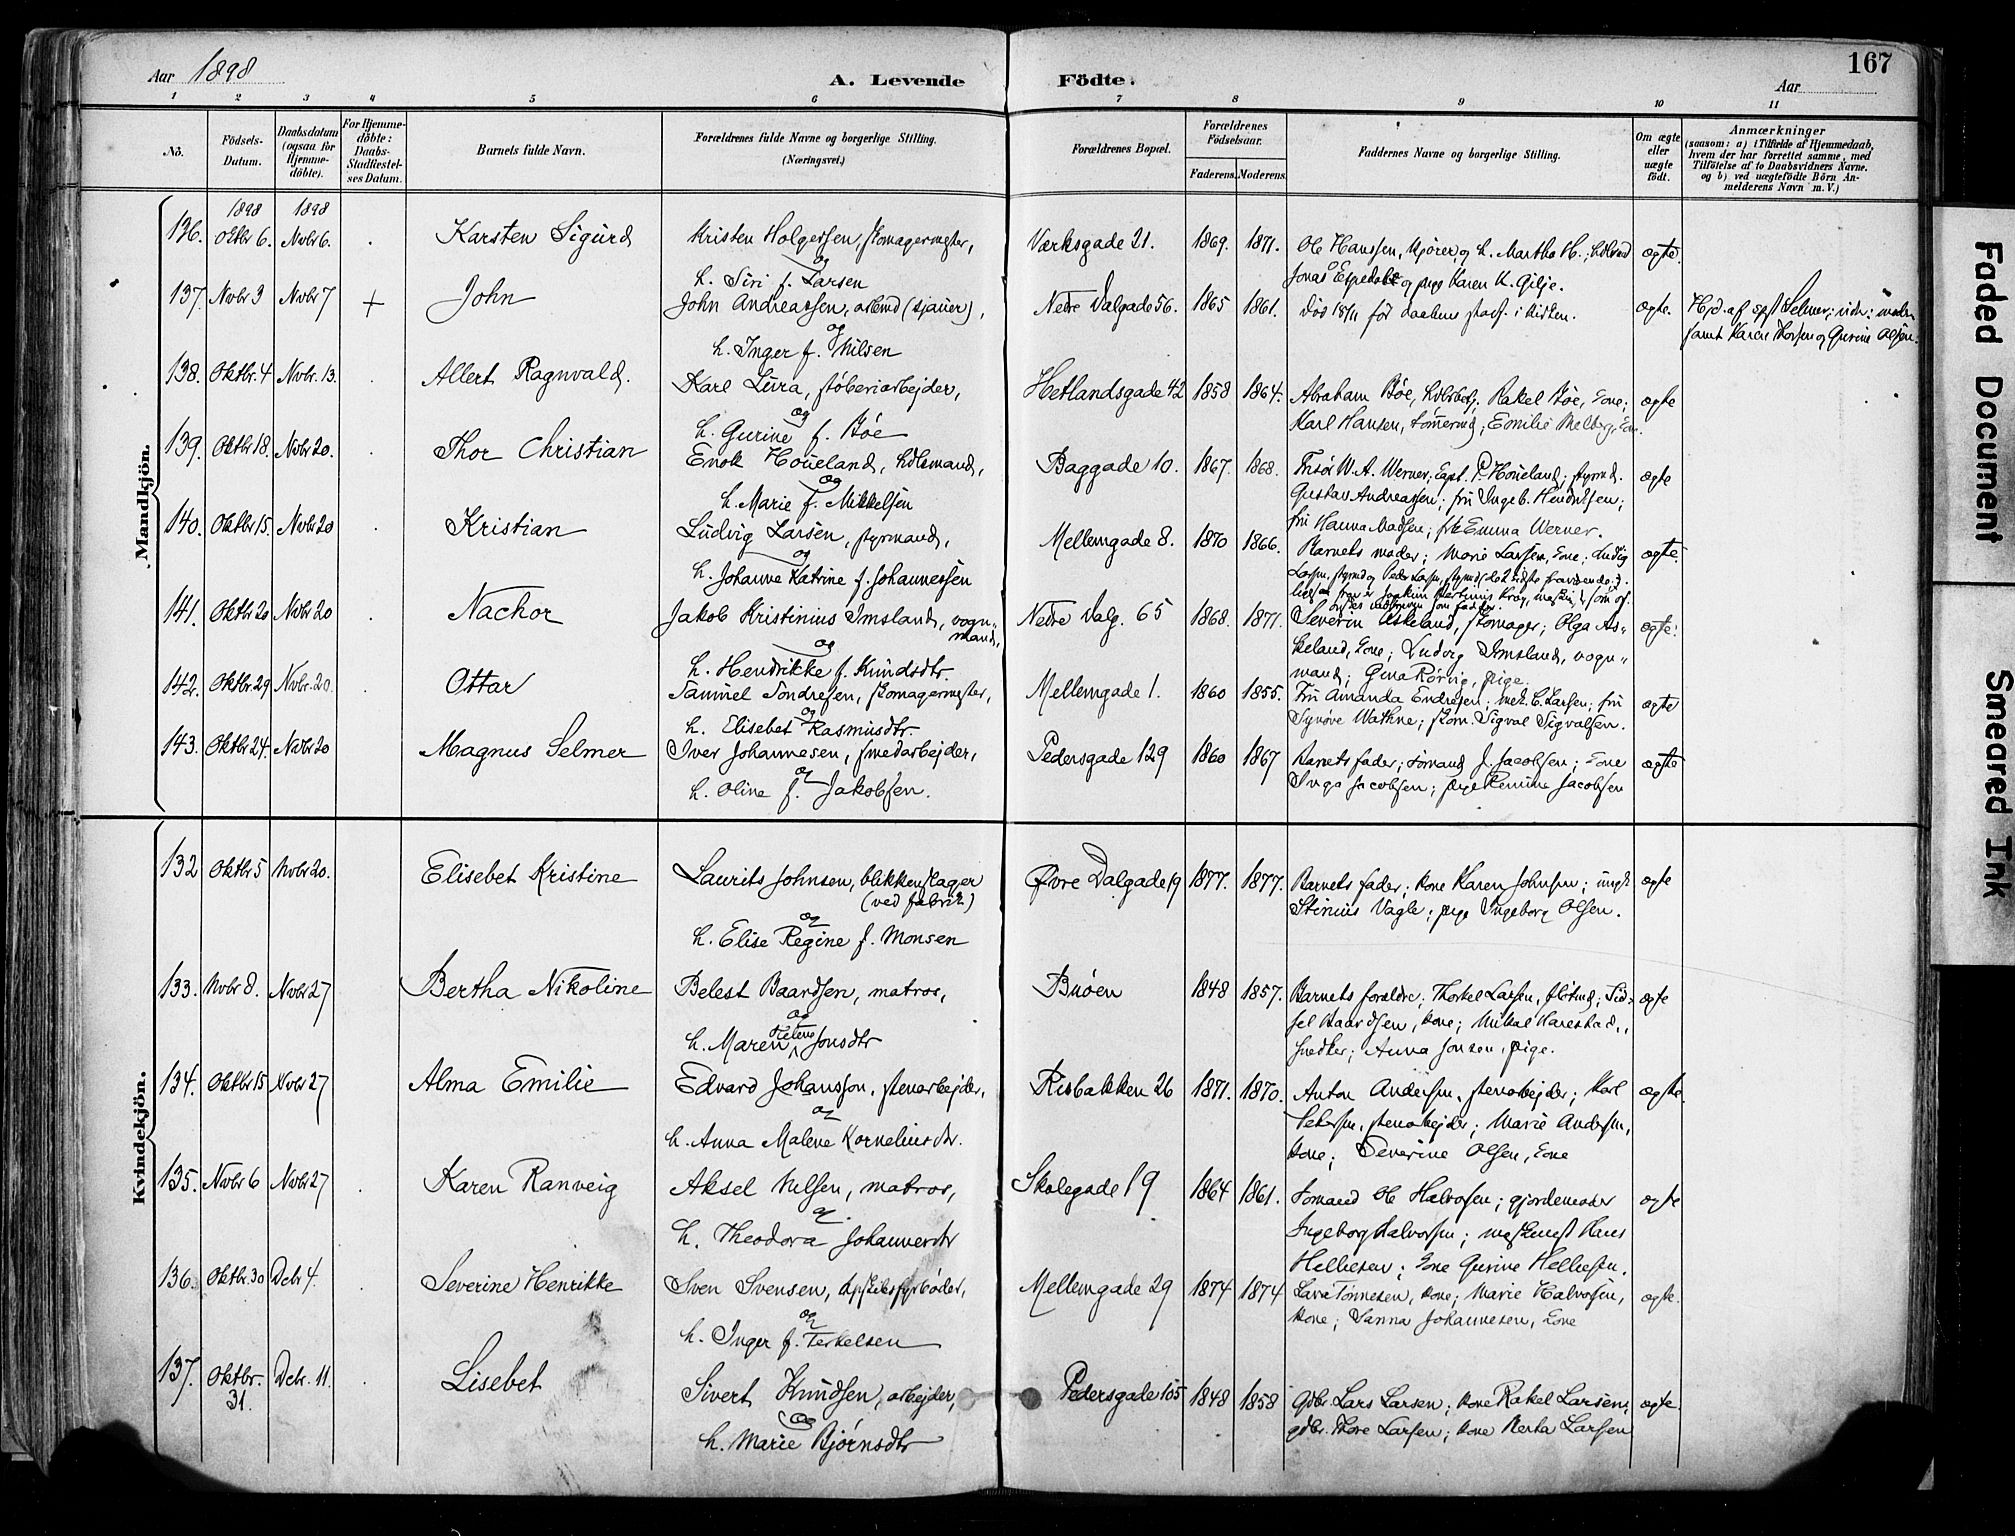 167
Aar 1898 A. Levende Födte. Aar
1 2 3 4 5 6 7 8 9 10 11
No. Födsels-Datum. Daabsdatum (ogsaa for Hjemme-döbte). For Hjemme-döbte: Daabs-Stadfæstelses Datum. Barnets fulde Navn. Forældrenes fulde Navne og borgerlige Stilling. (Næringsvei.) Forældrenes Bopæl. Forældrenes Födselsaar. Faderens. Moderens. Faddernes Navne og borgerlige Stilling. Om ægte eller uægte födt. Anmærkninger (saasom: a) i Tilfælde af Hjemmedaab, hvem der har forrettet samme, med Tilföielse af to Daabsvidners Navne. og b) ved uægtefödte Börn Anmelderens Navn m. V.)
Mandkjön.
1898 1898
136. Oktbr 6. Nvbr 6. Karsten Sigurd Kristen Holgersen, skomagermester, Værksgade 21. 1869. 1871. Ole Hanssen, kjører og h. Martha H.; ægte.
og
h. Siri f. Larsen Jonas Espedal og pige Karen K. Gilje.
137. Nvbr 3 Nvbr 7 + John John Andreassen, arbmd (sjauer), Nedre Dalgade 56. 1865 1861. død 18/11 før daabens stadf. i kirken. ægte. Hjd. af Selmer; vidn:
og
h. Inger f. Nilsen samt Karen og Gurine Olsen.
138. Oktbr. 4 Nvbr. 13. Allert Ragnvald. Karl Lura, støberiarbejder, Hetlandsgade 42 1858 1864. Abraham Bøe, Rakel Bøe, kone; ægte
og
h. Gurine f. Bøe Karl Hansen, ; Emilie Melberg, kone.
139. Oktbr 18. Nvbr 20. Thor Christian Enok Houeland, hdlsmand, Baggade 10. 1867. 1868. Frisør W. A. Werner; Capt. P. Houeland; styrmd. ægte
og
h. Marie f. Mikkelsen Gustav Andreassen; fru Ingeb. Hendriksen;
fru Hanna Madsen; frk Emma Werner.
140. Oktbr 15. Nvbr 20 Kristian Ludvig Larsen, styrmand, Mellemgade 8. 1870 1866. Barnets moder; Marie Larsen, kone; Ludvig ægte
og
h. Johanne Katrine f. Johannessen Larsen, styrmd og Peder Larsen, styrmd (de 2 sidste fraværende).
141. Oktbr 20 Nvbr 20 Nachor Jakob Kristinius Imsland, vognmand, Nedre Dalg. 65 1868. 1871. Severin Askeland, skomager; Olga Askeland, kone; Ludvig Imsland, vognmand; Gina Rørvig, pige. ægte.
og
h. Hendrikke f. Knudsdtr.
142. Oktbr. 29 Nvbr. 20. Ottar Samuel Sondresen, skomagermester, Mellemgade 1. 1860 1855. Fru Amanda Endresen; mek. C. Larsen; fru ægte
og
h. Elisebet Rasmusdtr. Synøve Wathne; skom. Sigval Sigvalsen.
143. Oktbr 24. Nvbr 20 Magnus Selmer Iver Johannesen, smedarbejder, Pedersgade 129 1860 1867 Barnets fader; sømand J. Jacobsen; kone ægte
og
h. Oline f. Jakobsen. Inga Jacobsen; pige Jacobsen
Kvindekjön.
132 Oktbr 5 Nvbr 20. Elisebet Kristine Laurits Johnsen, blikkenslager (ved fabrik) Øvre Dalgade 19 1877. 1877. Barnets fader; kone Karen Johnsen; ungk. ægte
og
h. Elise Regine f. Monsen Stinius Vagle; pige Ingeborg Olsen.
133. Nvbr 8. Nvbr 27 Bertha Nikoline Belest Baardsen, matros, Buøen 1848 1857. Barnets forældre; Thorkel Larsen, ; Sidsel Baardsen, kone; Mikal Harestad, ægte
og
h. Maren Helene Jonsdtr snedker; Anna Jonsen, pige.
134. Oktbr 15 Nvbr 27 Alma Emilie Edvard Johansson, stenarbejder, Risbakken 26 1871. 1870. Anton Andersen, stenarbejder; Karl ægte.
og
h. Anna Malene Korneliusdtr. Petersen, stenarbejder; Marie Andersen,
kone; Severine Olsen, kone
135. Nvbr 6 Nvbr 27 Karen Ranveig Aksel Nilsen, matros, Skolegade 19 1864 1861. Sømand Ole Halvorsen; gjordemoder ægte
og
h. Theodora Johannesdtr Ingeborg Halvorsen; Hans
Helliesen; kone Gurine Helliesen.
136. Oktbr. 30 Dcbr 4. Severine Henrikke Sven Svensen, dpskibsfyrbøder, Mellemgade 29 1874 1874 Lava Tønnesen, kone; Marie Halvorsen, ægte.
og
h. Inger f. Terkelsen kone; Sanna Johannesen, kone
137. Oktbr. 31. Dcbr. 11. Lisebet Sivert Knudsen, arbejder, Pedersgade 105 1848 1858 Gdbr. Lars Larsen; kone Rakel Larsen; ægte.
og
h. Marie Bjørnsdtr gdbr. Thore Larsen; kone Berta Larsen
Faded Document
Smeared Ink